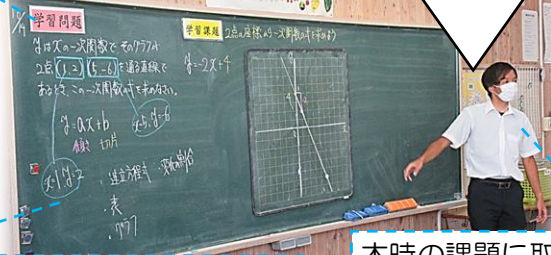 10/19
学習問題
yはxの一次関数で、そのグラフが
2点(1,2)(5,-6)を通る直線で
あるとき、この一次関数の式を求めなさい。
y=ax+b
傾き 切片
x=1,y=2
x=5,y=-6
・連立方程式
・表
・グラフ
学習課題
2点の座標から一次関数の式を求めよう
y=-2x+4
4
2
本時の課題に取